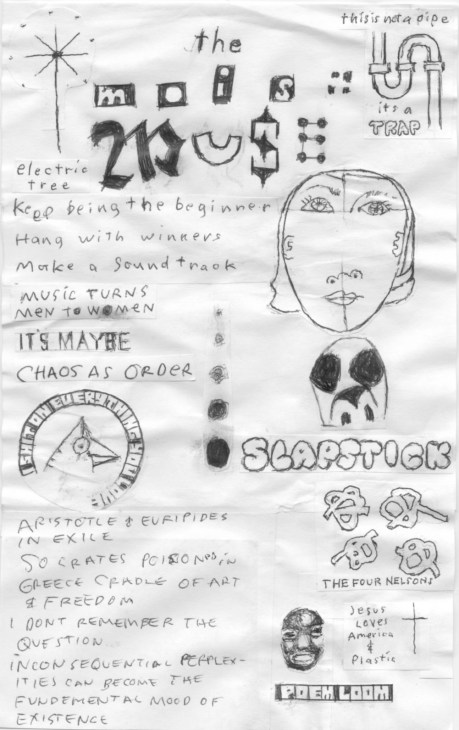 this is not a pipe
the
mois::
MUSE
it's a
TRAP
electric
tree
Keep being the beginner
Hang with winners
Make a Sound track
MUSIC TURNS
MEN TO WOMEN
IT'S MAYBE
CHAOS AS ORDER
SHIT ON EVERYTHING
SLAPSTICK
ARISTOTLE & EURIPIDES
IN EXILE
SOCRATES POISONED IN
GREECE CRADLE OF ART
& FREEDOM
I DONT REMEMBER THE
QUESTION...
INCONSEQUENTIAL PERPLEX-
ITIES CAN BECOME THE
FUNDEMENTAL MOOD OF
EXISTENCE
THE FOUR NELSONS
Jesus
Loves
America
&
Plastic
POEM LOOM